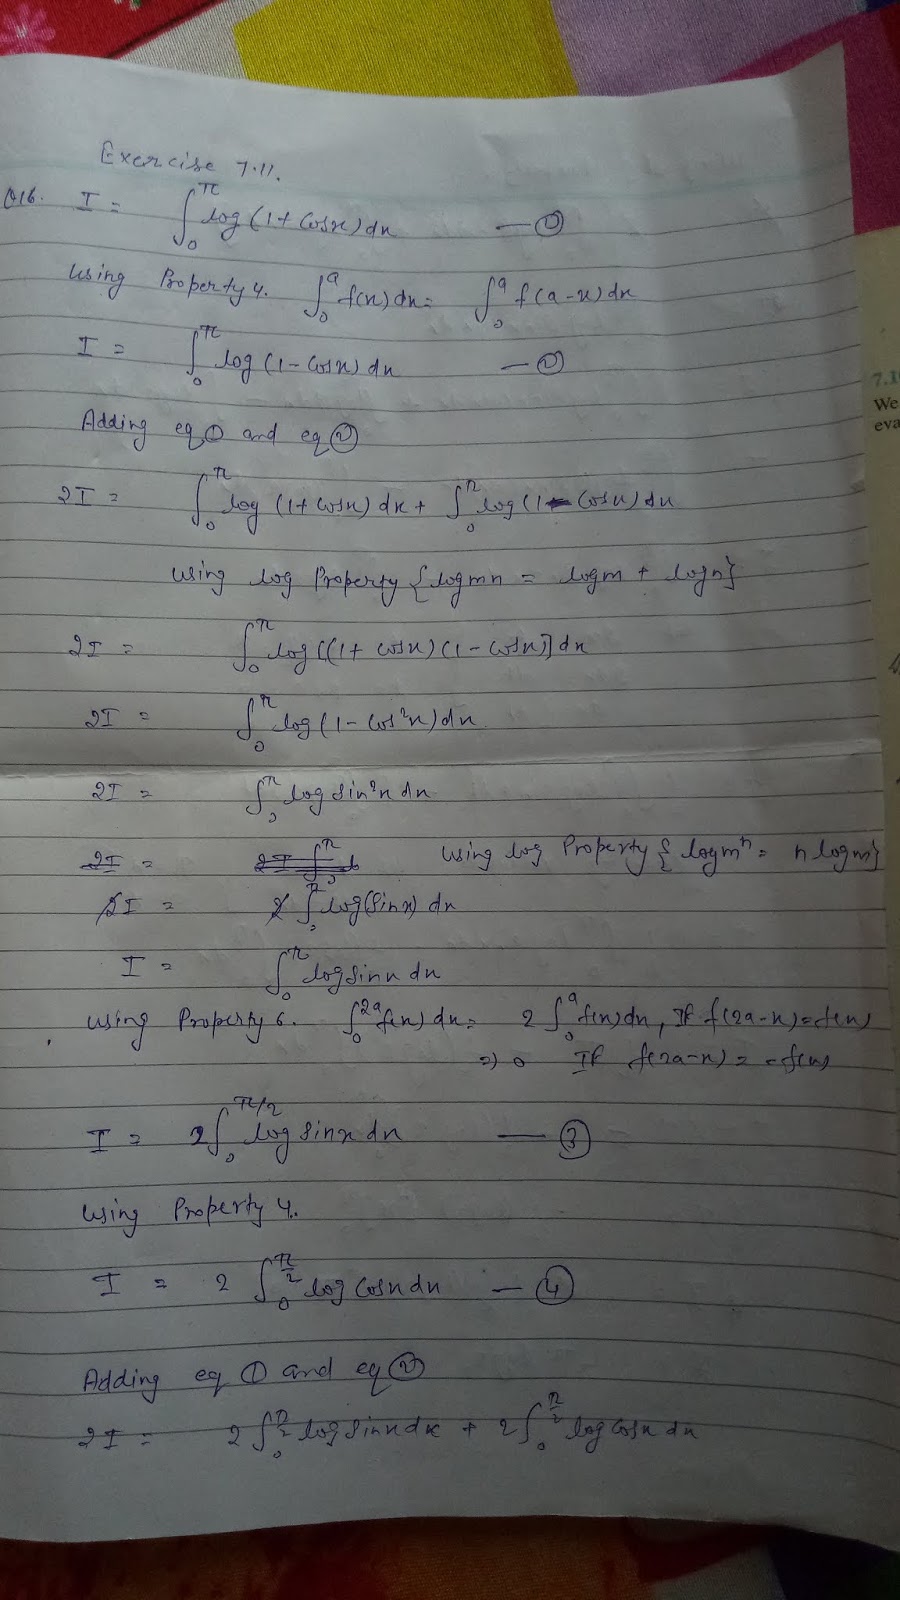 Exercise 7.11.
Q16. I = ∫₀^π log (1 + Cosx) dx —①
Using Property 4. ∫₀^a f(x) dx = ∫₀^a f(a-x) dx
I = ∫₀^π log (1 - Cosx) dx —②
Adding eq ① and eq ②
2I = ∫₀^π log (1 + Cosx) dx + ∫₀^π log (1 - Cosx) dx
Using log Property {logmn = logm + logn}
2I = ∫₀^π log [(1 + cosx) (1 - cosx)] dx
2I = ∫₀^π log (1 - Cos²x) dx.
2I = ∫₀^π log Sin²x dx
2I = Using log Property {logmⁿ = n logm}
2I = 2 ∫₀^π log(Sinx) dx
I = ∫₀^π log Sinx dx
Using Property 6. ∫₀^2a f(x) dx = 2 ∫₀^a f(x) dx, If f(2a-x) = f(x)
=> 0 If f(2a-x) = -f(x)
I = 2 ∫₀^π/2 log Sinx dx —③
Using Property 4.
I = 2 ∫₀^π/2 log Cosx dx —④
Adding eq ① and eq ②
2I = 2 ∫₀^π/2 log Sinx dx + 2 ∫₀^π/2 log Cosx dx
7.1
We
eva